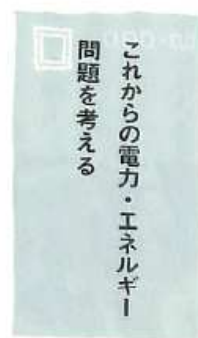 これからの電力・エネルギー
問題を考える